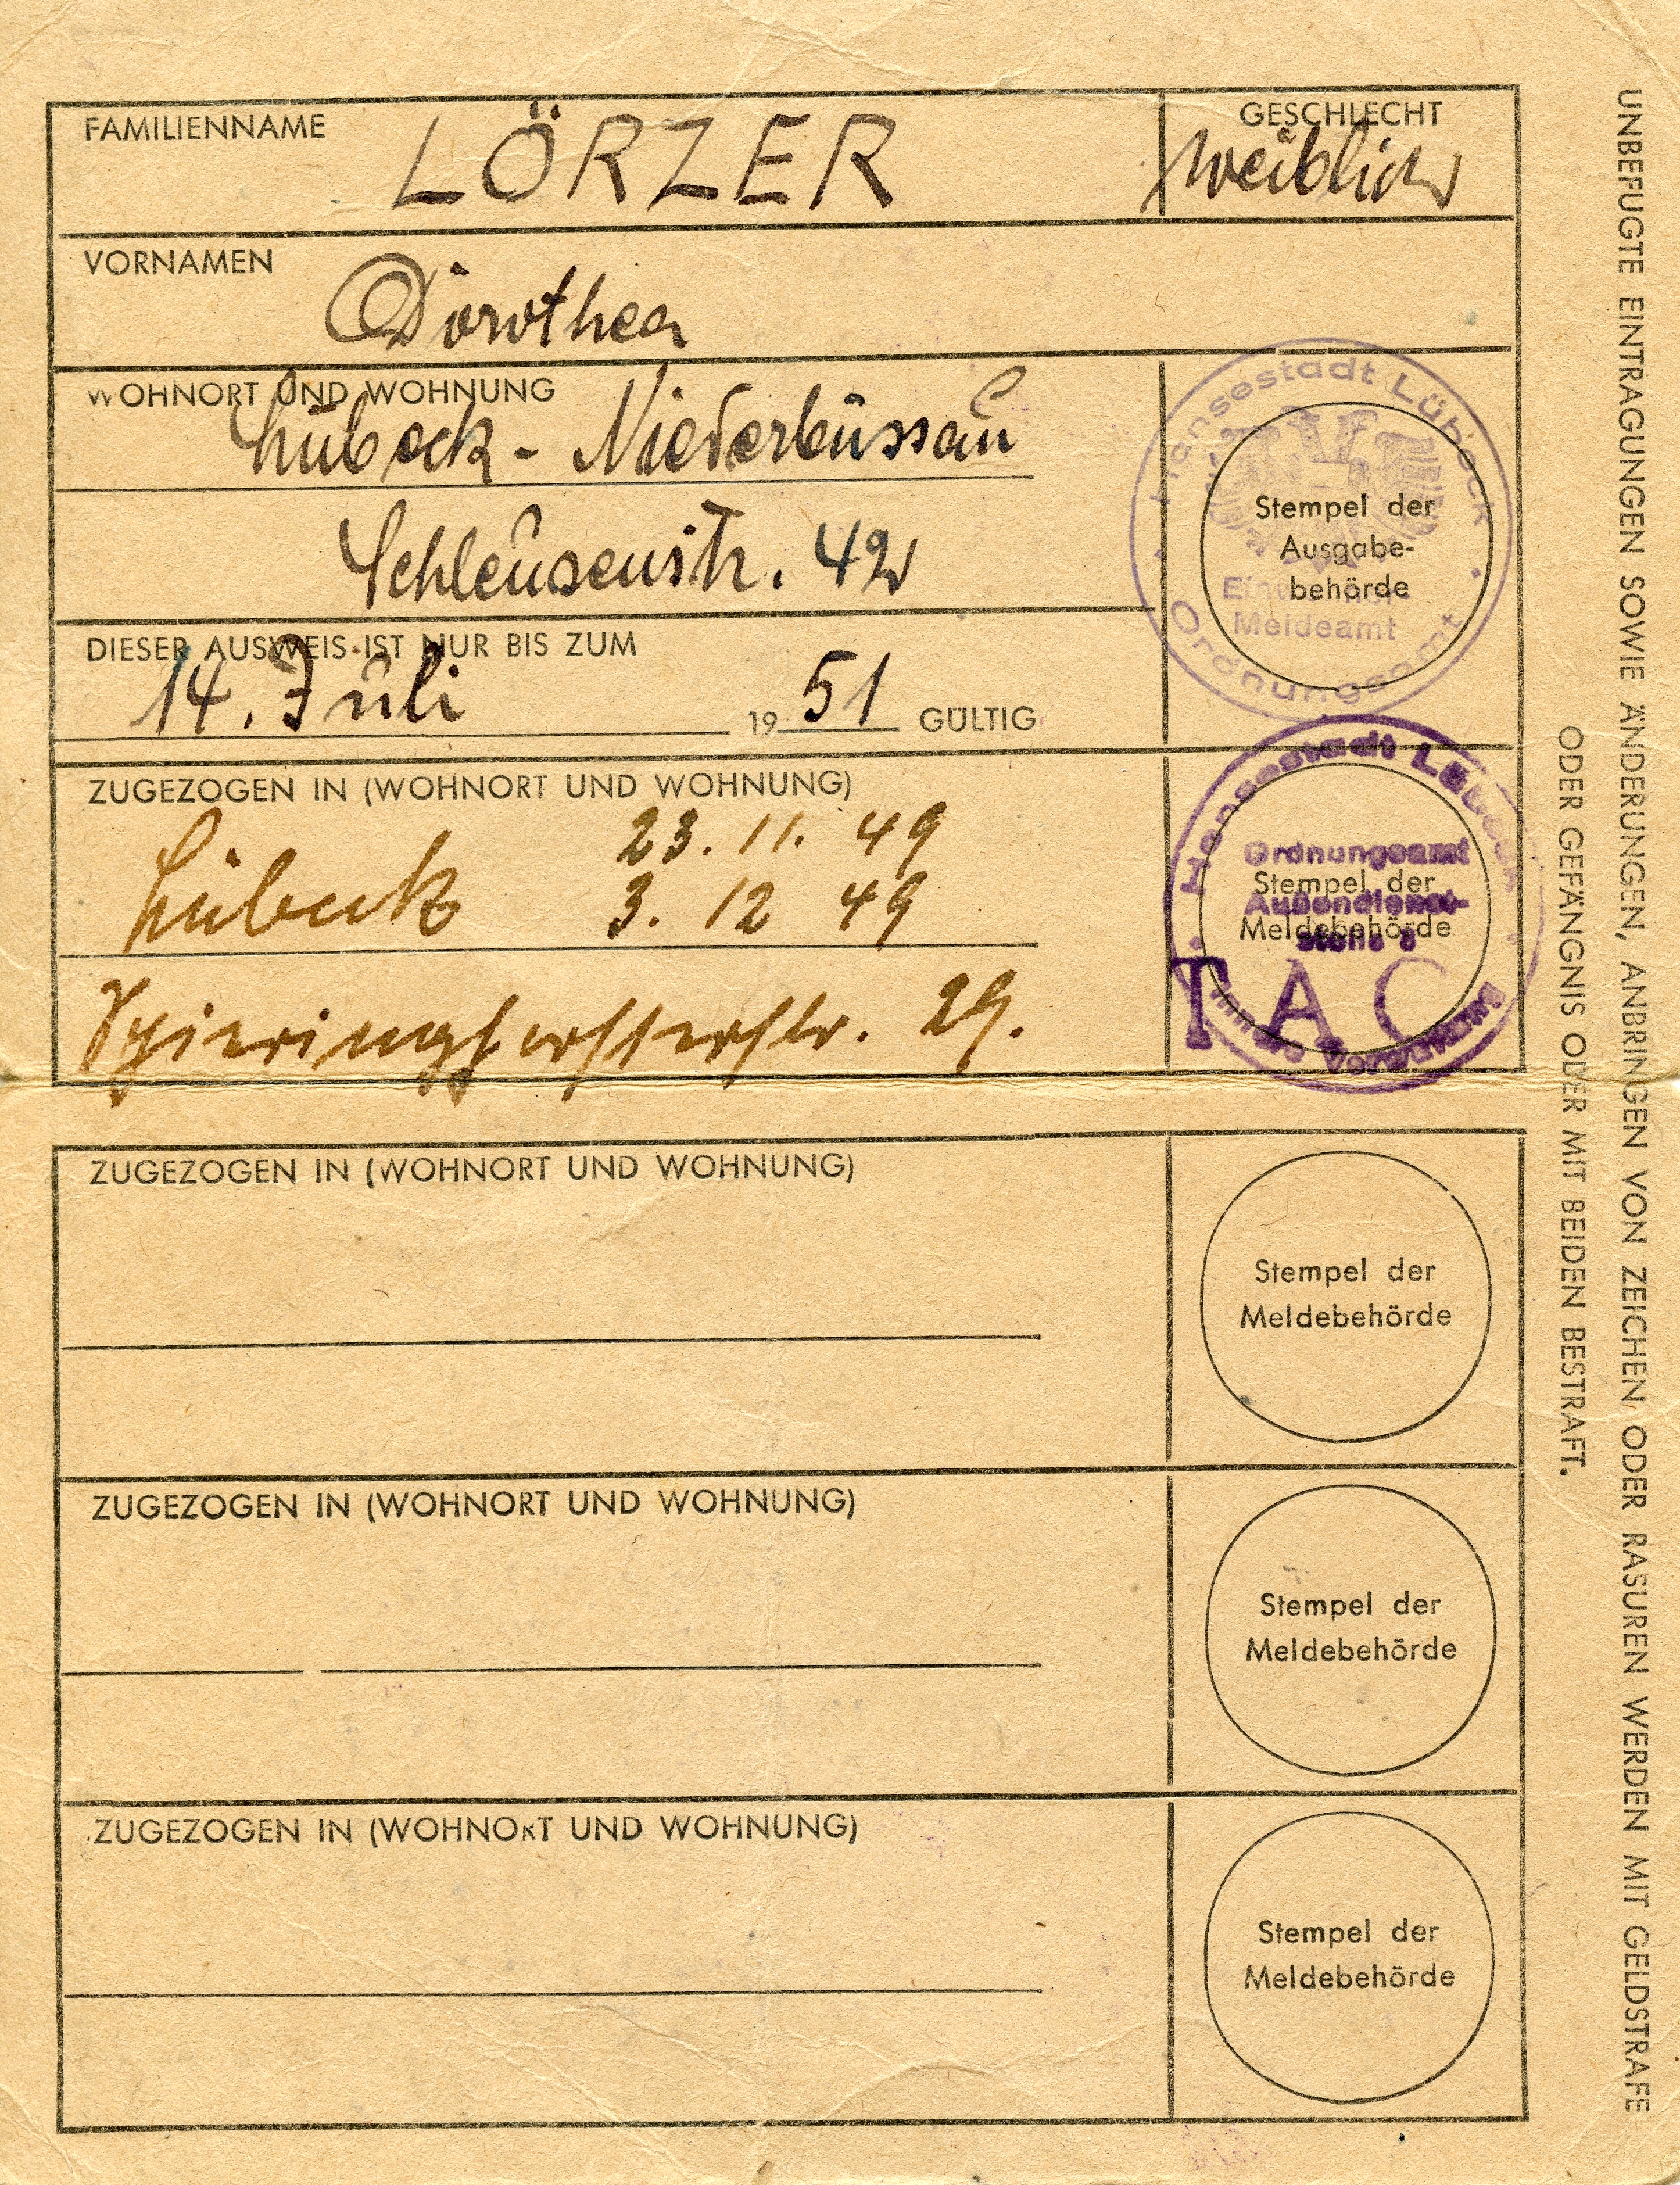 FAMILIENNAME LÖRZER GESCHLECHT
weiblich
VORNAMEN
Dorothea
WOHNORT UND WOHNUNG
Lübeck - Niederbüssau
Schleusenstr. 42
Hansestadt Lübeck
Ordnungsamt
Stempel der
Ausgabe-
behörde
Meldeamt
DIESER AUSWEIS IST NUR BIS ZUM
14. Juli 1951 GÜLTIG
ZUGEZOGEN IN (WOHNORT UND WOHNUNG)
23. 11. 49
Lübeck 3. 12 49
29.
Hansestadt Lübeck
Ordnungsamt
Stempel der
Außendienst-
Meldebehörde
stelle 8
TAC
Verwaltung
ZUGEZOGEN IN (WOHNORT UND WOHNUNG)
Stempel der
Meldebehörde
ZUGEZOGEN IN (WOHNORT UND WOHNUNG)
Stempel der
Meldebehörde
ZUGEZOGEN IN (WOHNORT UND WOHNUNG)
Stempel der
Meldebehörde
UNBEFUGTE EINTRAGUNGEN SOWIE ÄNDERUNGEN, ANBRINGEN VON ZEICHEN ODER RASUREN WERDEN MIT GELDSTRAFE
ODER GEFÄNGNIS ODER MIT BEIDEN BESTRAFT.